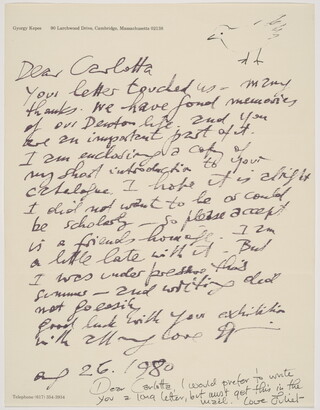 Gyorgy Kepes 90 Larchwood Drive, Cambridge, Massachusetts 02138
Dear Carlotta
Your letter touched us – many
thanks. We have fond memories
of our Denton life and you
are an important part of it.
I am enclosing a copy of
my short introduction to your
catalogue. I hope it is alright
I did not want to be or could
be scholarly – so please accept
is a friends homage. I am
a little late with it. But
I was under pressure this
summer – and writing did
not go easily
Good luck with your exhibition
with all my love
aug 26. 1980
Dear Carlotta, I would prefer to write
you a long letter, but must get this in the
mail. Love Juliet
Telephone (617)